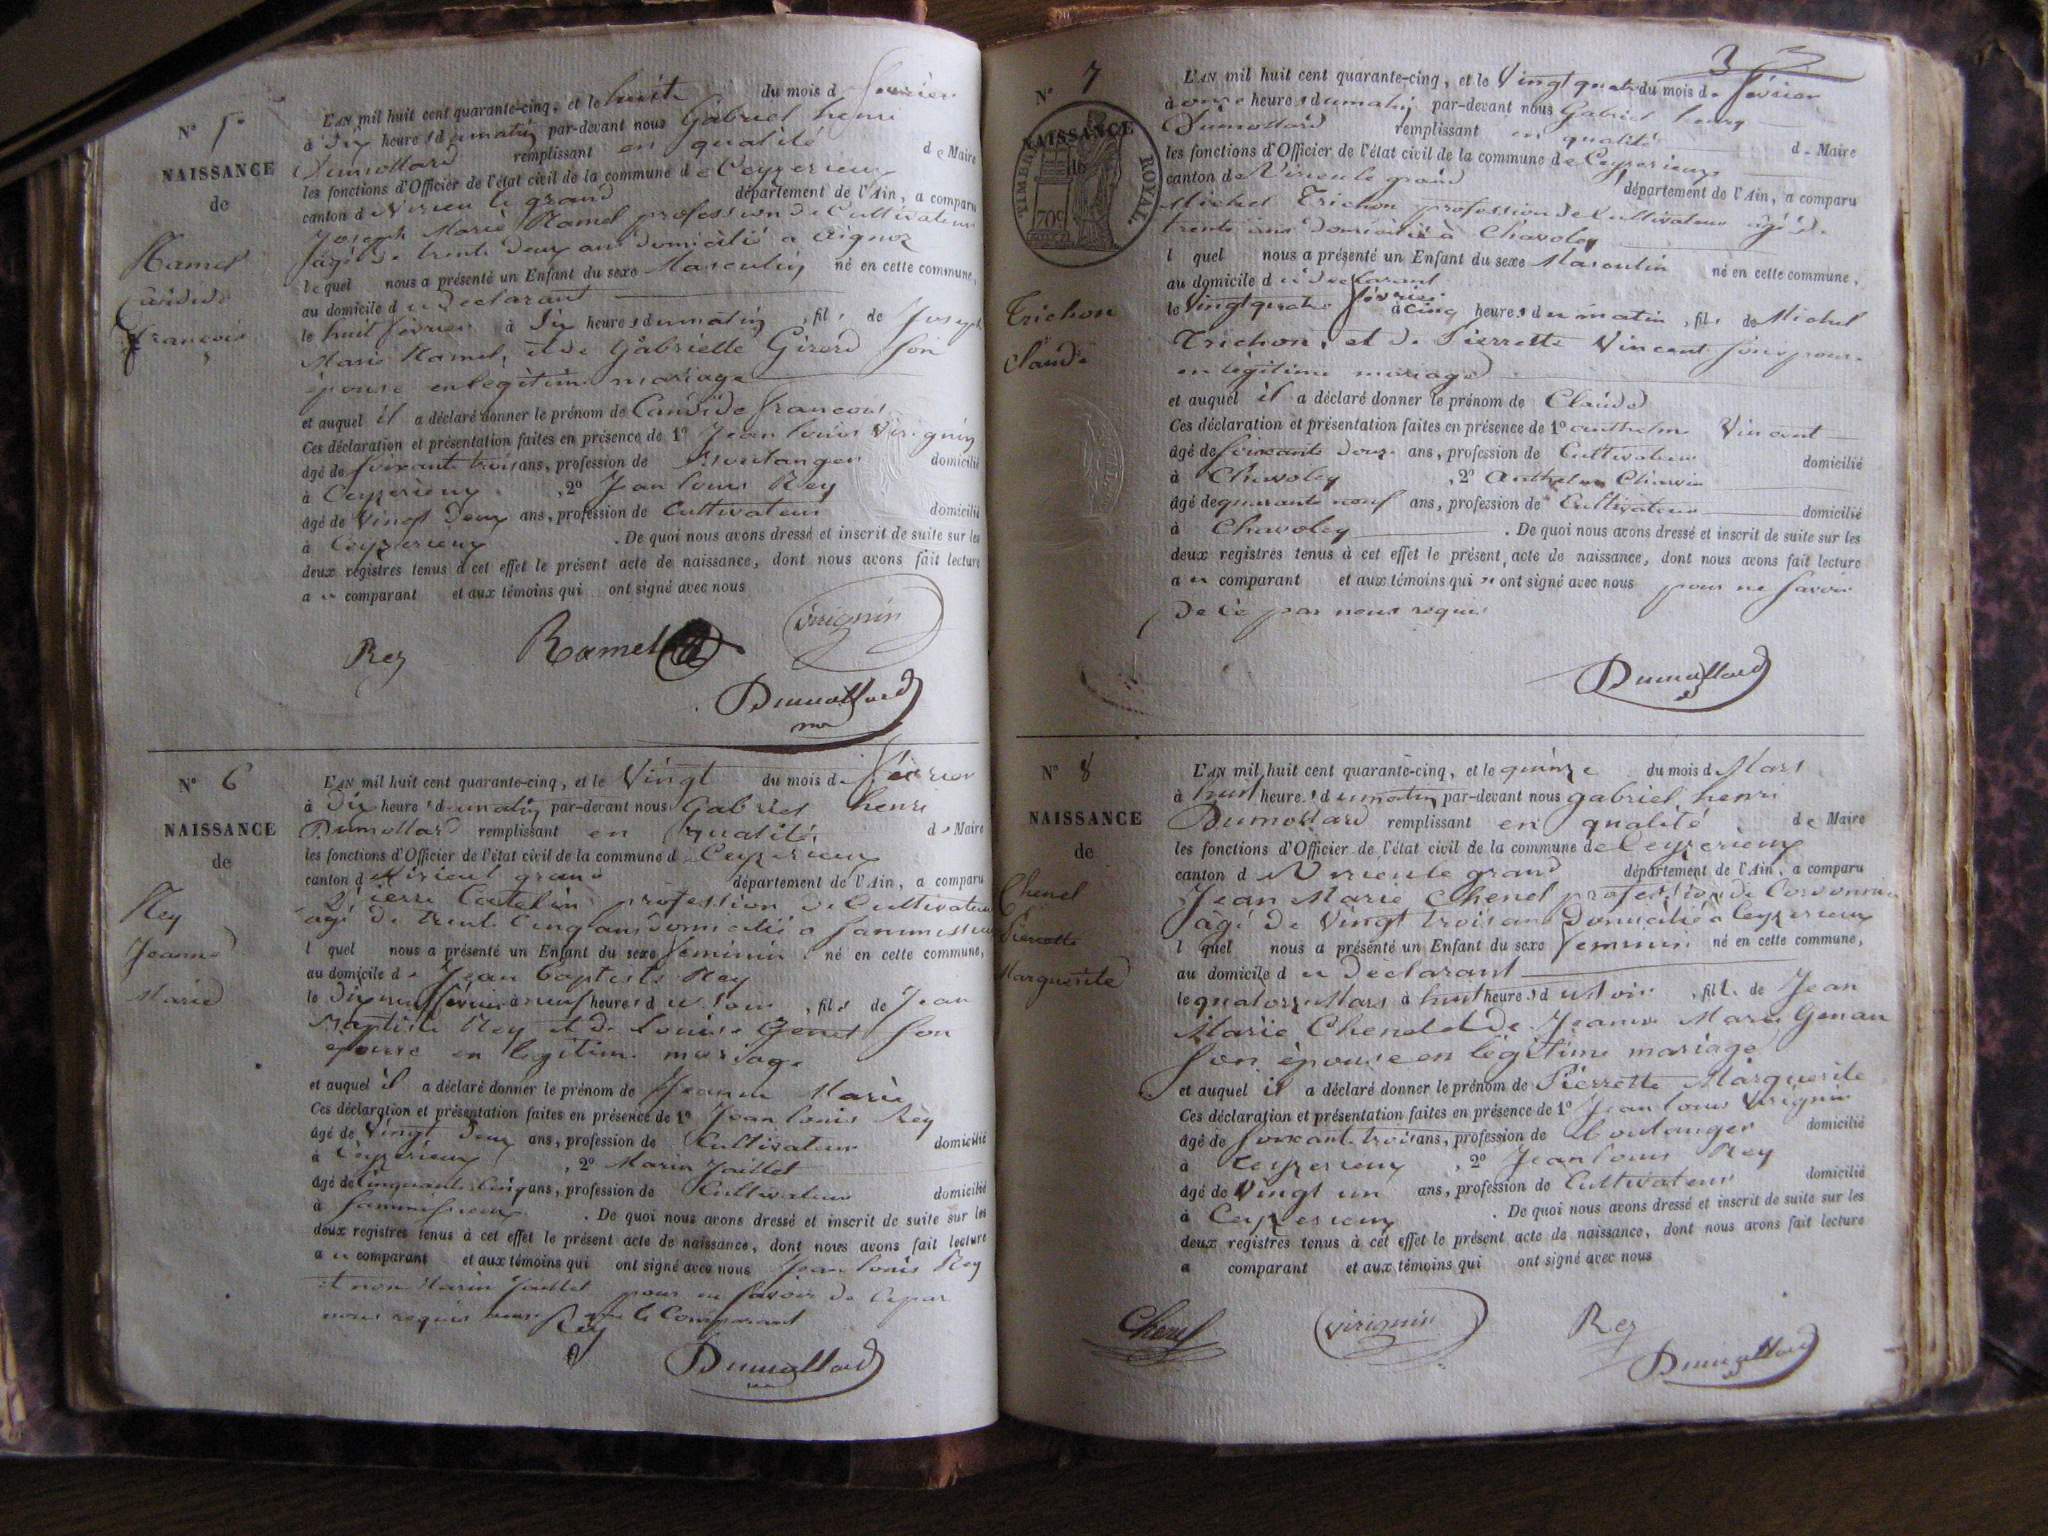 N° 5.
NAISSANCE
de
Ramel
Candide
François
L'AN mil huit cent quarante-cinq, et le huit du mois de février
à dix heures du matin par-devant nous Gabriel henri
Dumollard remplissant en qualité de Maire
les fonctions d'Officier de l'état civil de la commune de Ceyzerieux
canton de Virieu le grand département de l'Ain, a comparu
Joseph Marie Ramel profession de Cultivateur
âgé de trente deux ans domicilié a aignoz
lequel nous a présenté un Enfant du sexe Masculin né en cette commune,
au domicile du déclarant
le huit février à dix heures du matin, fils de Joseph
Marie Ramel, et de Gabrielle Girerd son
épouse en légitime mariage
et auquel il a déclaré donner le prénom de Candide françois
Ces déclaration et présentation faites en présence de 1° Jean louis Virignin
âgé de soixante trois ans, profession de Boulanger domicilié
à Ceyzerieux, 2° Jean louis Rey
âgé de vingt deux ans, profession de Cultivateur domicilié
à Ceyzerieux. De quoi nous avons dressé et inscrit de suite sur les
deux registres tenus à cet effet le présent acte de naissance, dont nous avons fait lecture
au comparant et aux témoins qui ont signé avec nous
Virignin
Rey Ramel
Dumollard
N° 6
NAISSANCE
de
Rey
Jeanne
Marie
L'AN mil huit cent quarante-cinq, et le Vingt du mois de février
à dix heures du matin par-devant nous Gabriel henri
Dumollard remplissant en qualité de Maire
les fonctions d'Officier de l'état civil de la commune de Ceyzerieux
canton de Virieu le grand département de l'Ain, a comparu
Pierre profession de Cultivateur
âgé de trente Cinq ans domicilié a
l quel nous a présenté un Enfant du sexe féminin né en cette commune,
au domicile de Jean baptiste Rey
le dix neuf février à neuf heures du soir, fils de Jean
Baptiste Rey et de Louise Genet son
épouse en légitime mariage
et auquel il a déclaré donner le prénom de Jeanne Marie
Ces déclaration et présentation faites en présence de 1° Jean louis Rey
âgé de vingt deux ans, profession de Cultivateur domicilié
à Ceyzerieux, 2° Marin Jaillet
âgé de Cinquante Cinq ans, profession de Cultivateur domicilié
à . De quoi nous avons dressé et inscrit de suite sur les
deux registres tenus à cet effet le présent acte de naissance, dont nous avons fait lecture
au comparant et aux témoins qui ont signé avec nous Jean louis Rey
et non Marin Jaillet pour ne savoir de ce par
nous requis le Comparant
Rey
Dumollard
3
N° 7
NAISSANCE
TIMBRE ROYAL
70c
Trichon
Claude
L'AN mil huit cent quarante-cinq, et le Vingt quatre du mois de février
à onze heures du matin par-devant nous Gabriel henry
Dumollard remplissant en qualité de Maire
les fonctions d'Officier de l'état civil de la commune de Ceyzerieux
canton de Virieu le grand département de l'Ain, a comparu
Michel Trichon profession de Cultivateur âgé de
trente ans domicilié à Chavoley
l quel nous a présenté un Enfant du sexe Masculin né en cette commune,
au domicile du déclarant
le Vingt quatre février à cinq heures du matin, fils de Michel
Trichon, et de Pierrette Vincent son épouse
en légitime mariage
et auquel il a déclaré donner le prénom de Claude
Ces déclaration et présentation faites en présence de 1° anthelme Vincent
âgé de soixante douze ans, profession de Cultivateur domicilié
à Chavoley, 2° Anthelme
âgé de quarante neuf ans, profession de Cultivateur domicilié
à Chavoley. De quoi nous avons dressé et inscrit de suite sur les
deux registres tenus à cet effet le présent acte de naissance, dont nous avons fait lecture
au comparant et aux témoins qui n'ont signé avec nous pour ne savoir
de ce par nous requis
Dumollard
N° 8
NAISSANCE
de
Chenel
Pierrette
Marguerite
L'AN mil huit cent quarante-cinq, et le quinze du mois de Mars
à huit heures du matin par-devant nous gabriel henri
Dumollard remplissant en qualité de Maire
les fonctions d'Officier de l'état civil de la commune de Ceyzerieux
canton de Virieu le grand département de l'Ain, a comparu
Jean Marie Chenel profession de Cordonnier
âgé de Vingt trois ans domicilié a Ceyzerieux
l quel nous a présenté un Enfant du sexe féminin né en cette commune,
au domicile du déclarant
le quatorze Mars à huit heures du soir, fille de Jean
Marie Chenel et de Jeanne Marie
son épouse en légitime mariage
et auquel il a déclaré donner le prénom de Pierrette Marguerite
Ces déclaration et présentation faites en présence de 1° Jean louis Virignin
âgé de soixante trois ans, profession de boulanger domicilié
à Ceyzerieux, 2° Jean louis Rey
âgé de Vingt un ans, profession de Cultivateur domicilié
à Ceyzerieux. De quoi nous avons dressé et inscrit de suite sur les
deux registres tenus à cet effet le présent acte de naissance, dont nous avons fait lecture
a comparant et aux témoins qui ont signé avec nous
Chenel Virignin Rey
Dumollard